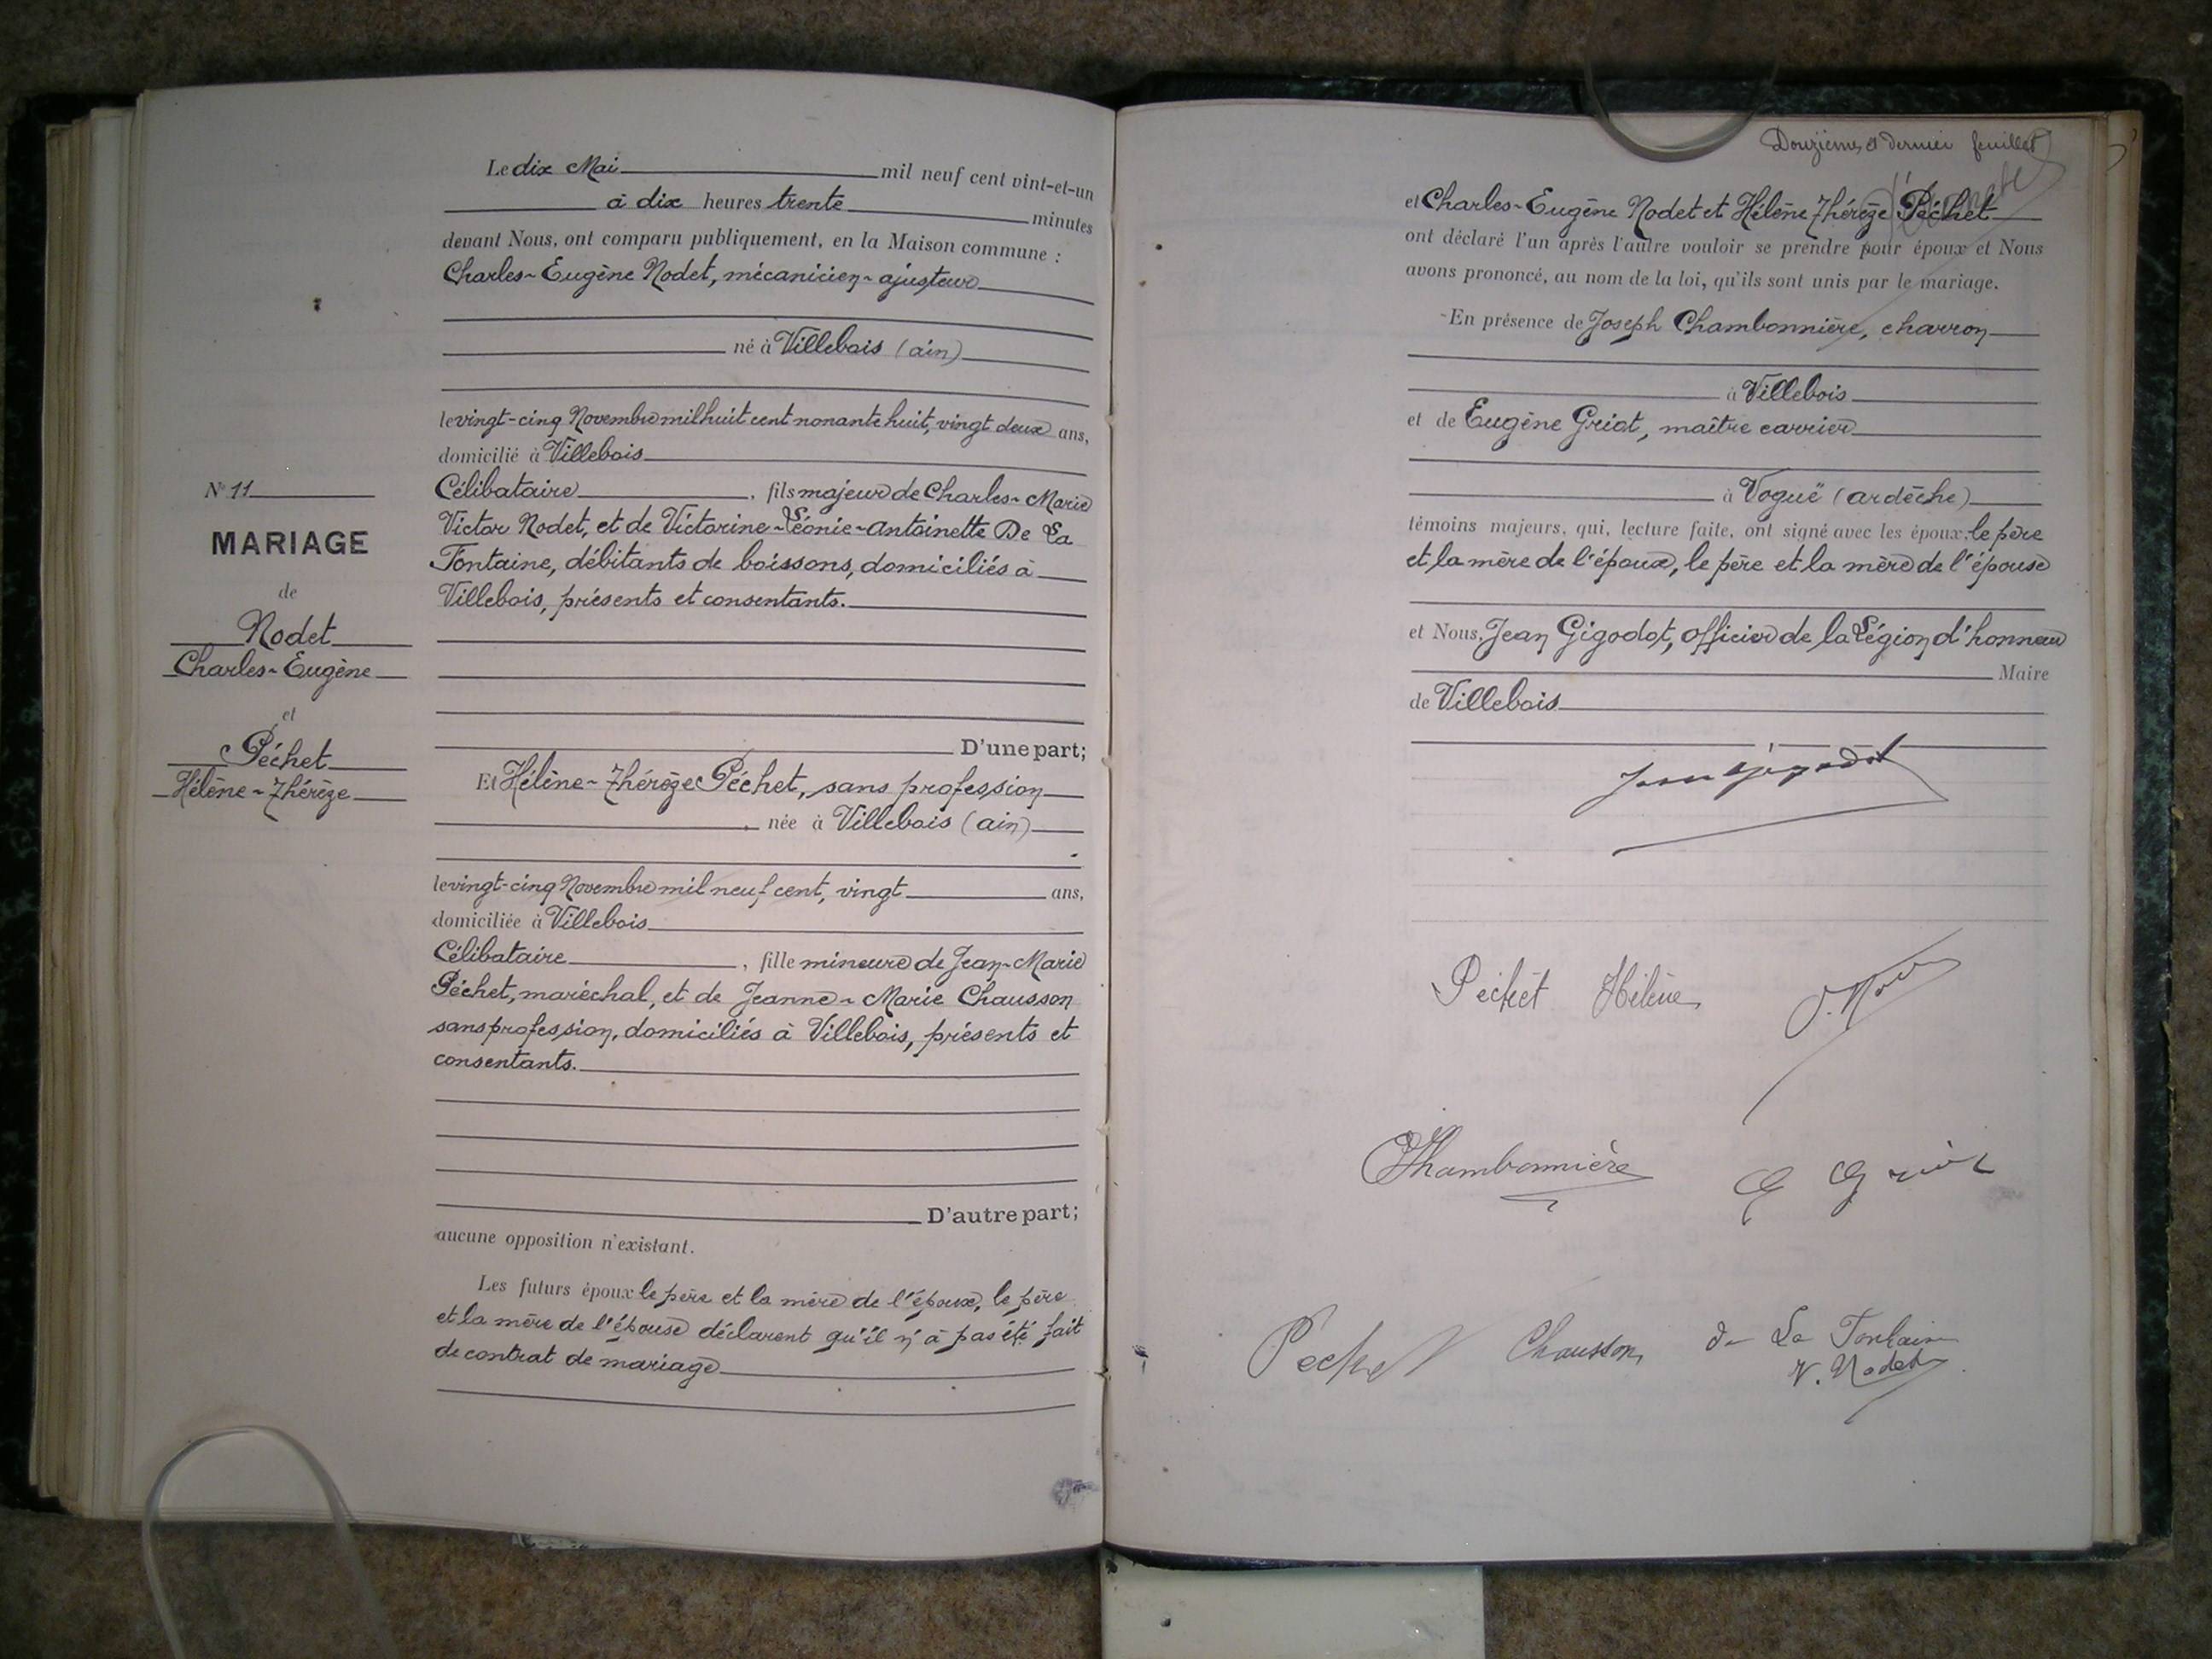 Le dix Mai mil neuf cent vint-et-un
à dix heures trente minutes
devant Nous, ont comparu publiquement, en la Maison commune :
Charles-Eugène Nodet, mécanicien-ajusteur
né à Villebois (ain)
le vingt-cinq Novembre mil huit cent nonante huit, vingt deux ans,
domicilié à Villebois
Célibataire, fils majeur de Charles-Marie
Victor Nodet, et de Victorine-Léonie-Antoinette De La
Fontaine, débitants de boissons, domiciliés à
Villebois, présents et consentants.
D'une part;
Et Hélène-Thérèze Péchet, sans profession
née à Villebois (ain)
le vingt-cinq Novembre mil neuf cent, vingt ans,
domiciliée à Villebois
Célibataire, fille mineure de Jean-Marie
Péchet, maréchal, et de Jeanne-Marie Chausson
sans profession, domiciliés à Villebois, présents et
consentants.
D'autre part;
aucune opposition n'existant.
Les futurs époux le père et la mère de l'époux, le père
et la mère de l'épouse déclarent qu'il n'a pas été fait
de contrat de mariage
N° 11
MARIAGE
de
Nodet
Charles-Eugène
et
Péchet
Hélène-Thérèze
Douzième et dernier feuillet
et Charles-Eugène Nodet et Hélène Thérèze Péchet
ont déclaré l'un après l'autre vouloir se prendre pour époux et Nous
avons prononcé, au nom de la loi, qu'ils sont unis par le mariage.
En présence de Joseph Chambonnière, charron
à Villebois
et de Eugène Griot, maître carrier
à Voguë (ardèche)
témoins majeurs, qui, lecture faite, ont signé avec les époux, le père
et la mère de l'époux, le père et la mère de l'épouse
et Nous, Jean Gigodot, officier de la Légion d'honneur
Maire
de Villebois
Jean Gigodot
Péchet Hélène
Chambonnière
E Griot
Péchet Chausson de La Fontaine
V. Nodet